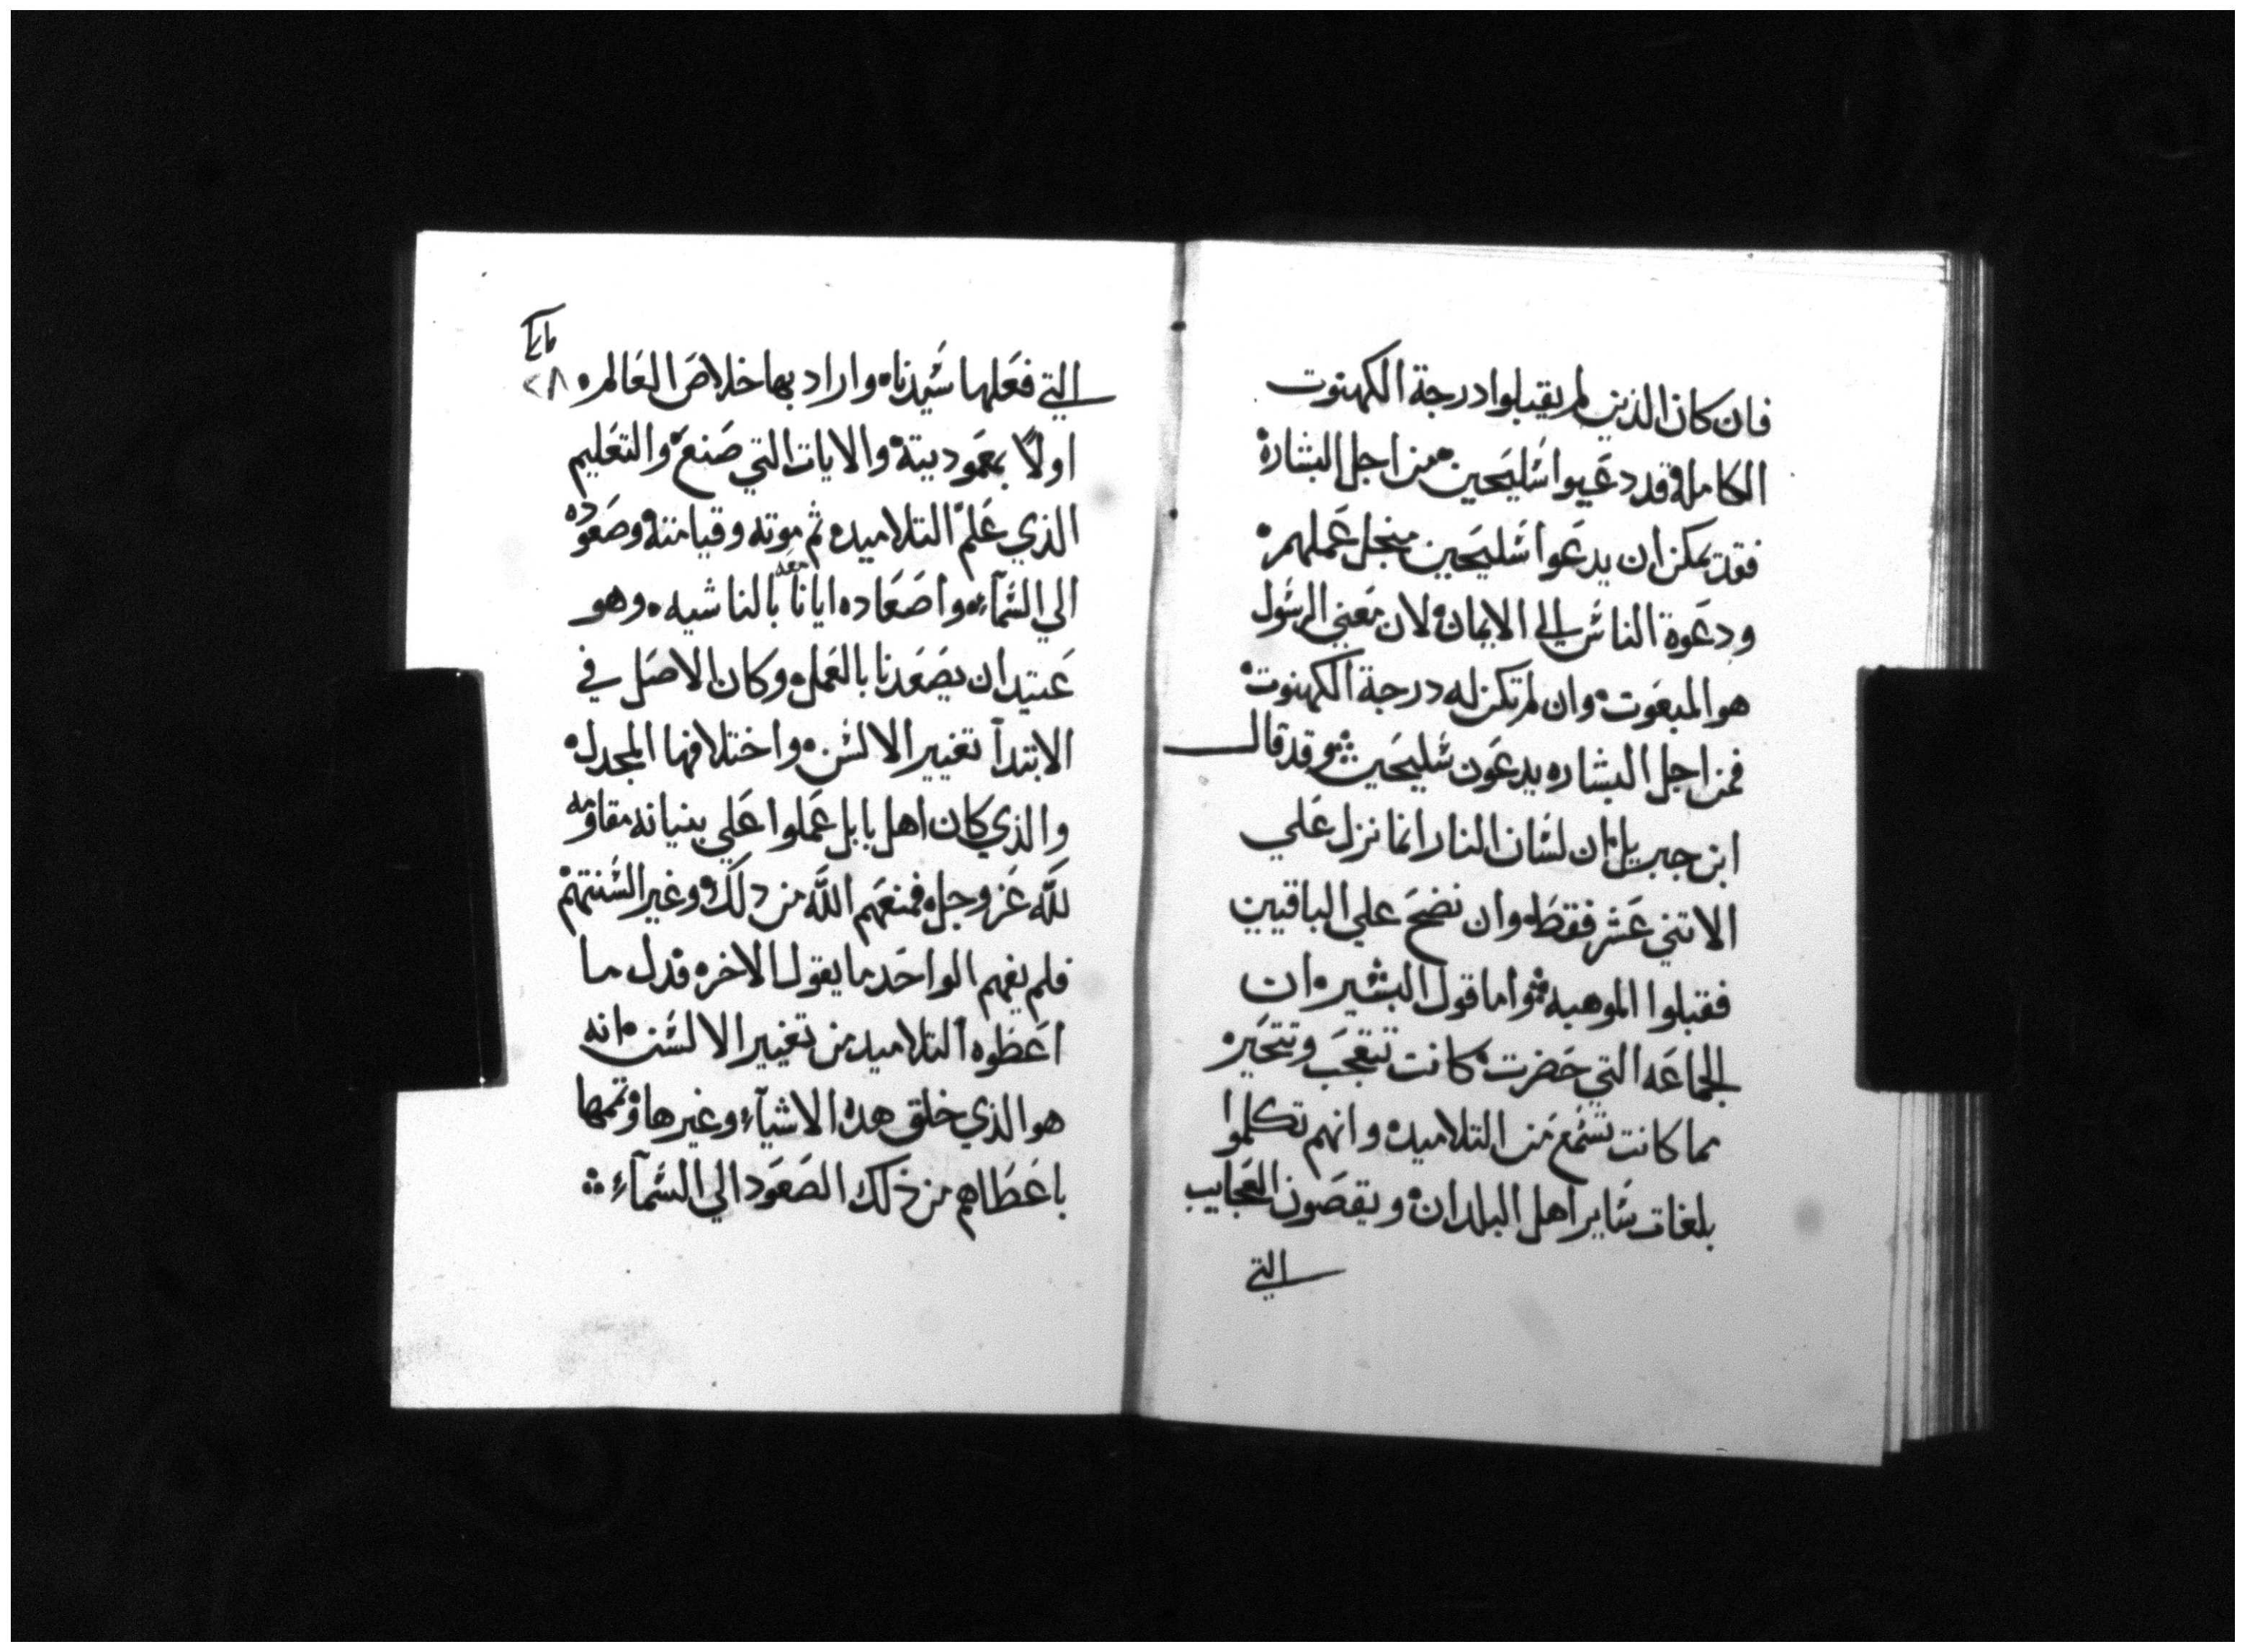 فان كان الذين لم يقبلوا درجة الكهنوت
الكامله قد دعيوا شليحين من اجل البشاره
فقد يمكن ان يدعوا شليحين منجل عملهم
ودعوة الناس الي الايمان لان معني الرسول
هو المبعوت وان لم تكن له درجة الكهنوت
فمن اجل البشاره يدعون شليحين وقد قال
ابن جبريل ان لسان النار انما نزل علي
الاتني عشر فقط وان نضح علي الباقيين
فقبلوا الموهبه واما قول البشير ان
الجماعه التي حضرت كانت تتعجب وتتحير
مما كانت تسمع من التلاميد وانهم تكلموا
بلغات ساير اهل البلدان ويقصون العجايب
التي
التي فعلها سيدنا واراد بها خلاص العالم
٢٨
اولاً بعموديته والايات التي صنع والتعليم
الذي علم التلاميد ثم موته وقيامته وصعوده
الي السمآء واصعاده ايانا معه بالناشيه وهو
عتيد ان يصعدنا بالعمل وكان الاصل في
الابتدآ تغيير الالسن واختلافها المجدل
والذي كان اهل بابل عملوا علي بنيانه مقاومه
لله عز وجل فمنعهم الله من دلك وغير السنتهم
فلم يفهم الواحد ما يقول الاخر فدل ما
اعطوه التلاميد من تغيير الالسن انه
هو الذي خلق هده الاشيآء وغيرها وتممها
باعطاهم من ذلك الصعود الي السمآء